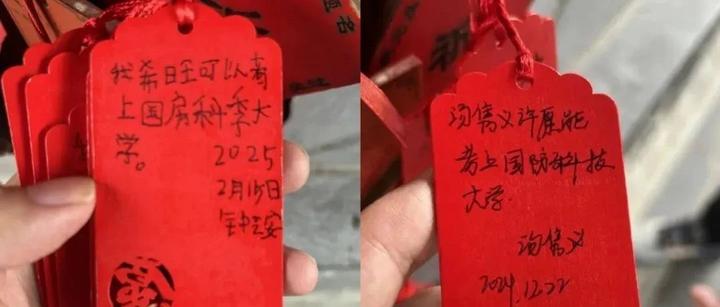 我希旺可以考
上国房科季大
学。
2025
2月15日
许愿能
考上国防科技
大学.
2024.12.22